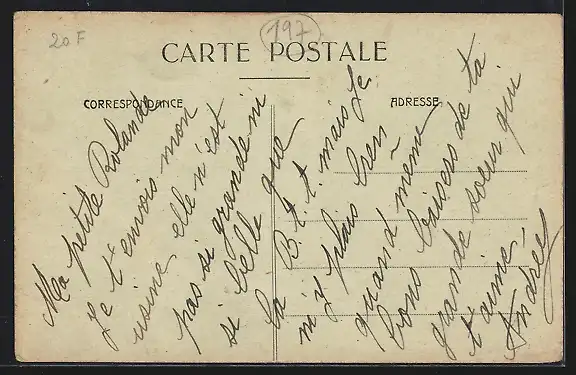 20 F
197
CARTE POSTALE
CORRESPONDANCE
ADRESSE
Ma petite Rolande
Je t'envois mon
usine, elle n'est
pas si grande ni
si belle que
la B. t. t. mais je
m'y plais bien
quand même
bons baisers de ta
grande soeur qui
t'aime,
Andrée